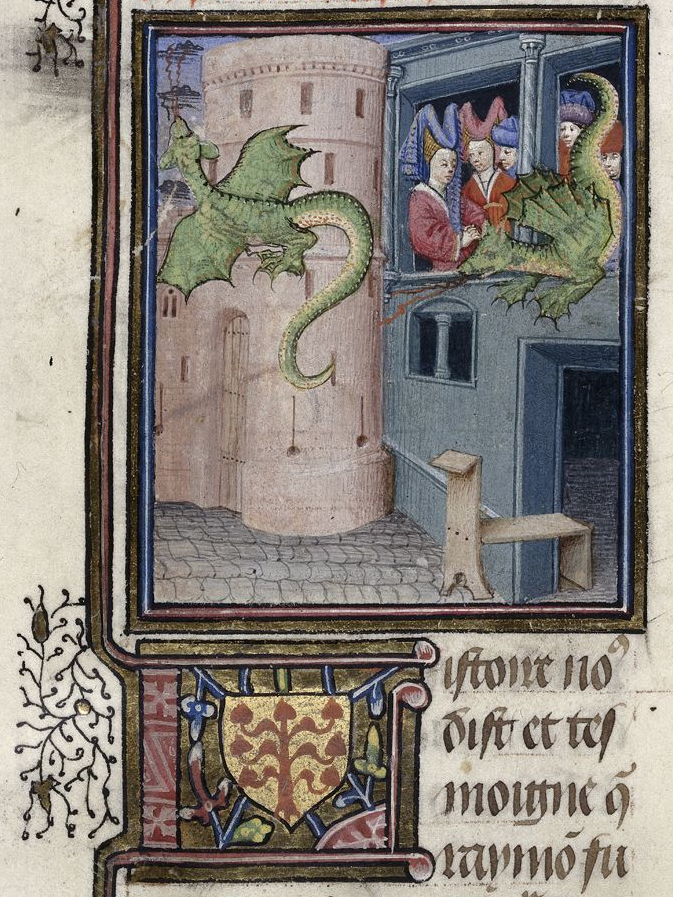 istoire no⁹
dist et tes
moigne q̃
raymõ fu